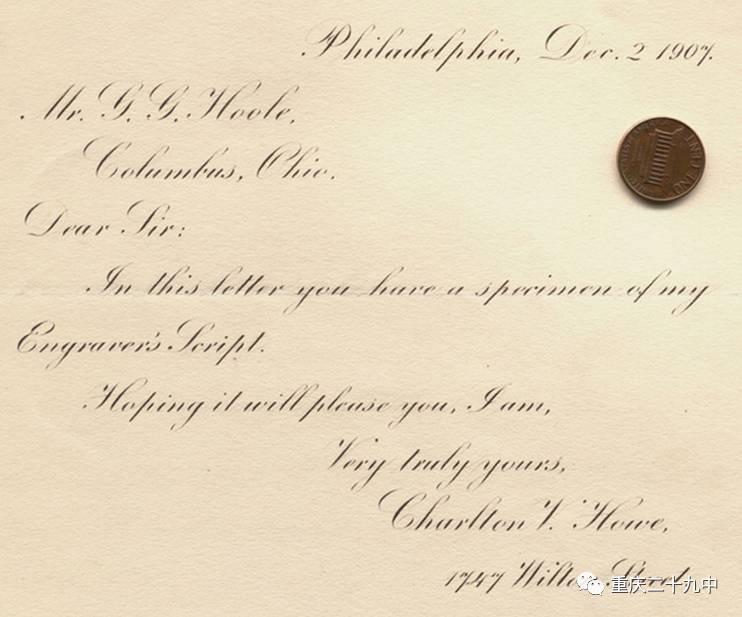 Philadelphia, Dec. 2 1907.
Mr. G. G. Hoole,
Columbus, Ohio.
Dear Sir:
In this letter you have a specimen of my
Engraver's Script.
Hoping it will please you, I am,
Very truly yours,
Charlton V. Howe,
1747 Street
重庆二十九中